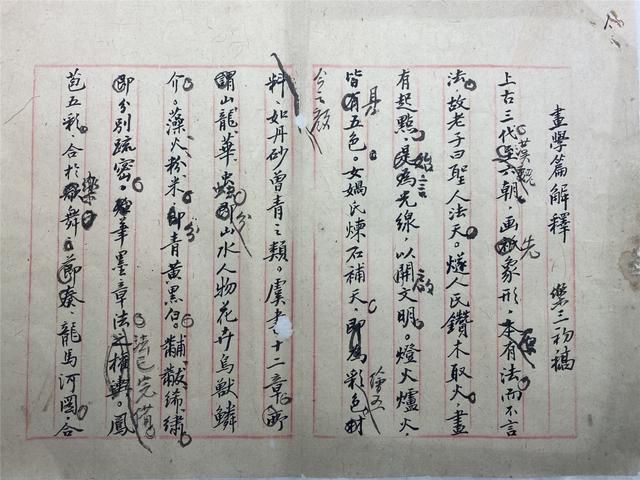 畫學篇解釋 樂三初稿
上古三代至六朝，画象形，本有法而不言
法，故老子曰聖人法天。燧人民鑽木取火，畫
有起點，是為光線，以開文明。燈火爐火，
皆有五色。女媧氏煉石補天，即為彩色材
料，如丹砂曾青之類。虞書十二章，所
謂山龍華蟲，即山水人物花卉鳥獸鱗
介。藻火粉米，即青黃黑白。黼黻絺繡
即分別疏密。筆墨章法 法已完備 鳳
苞五彩，合於樂舞。節奏，龍馬河圖，合